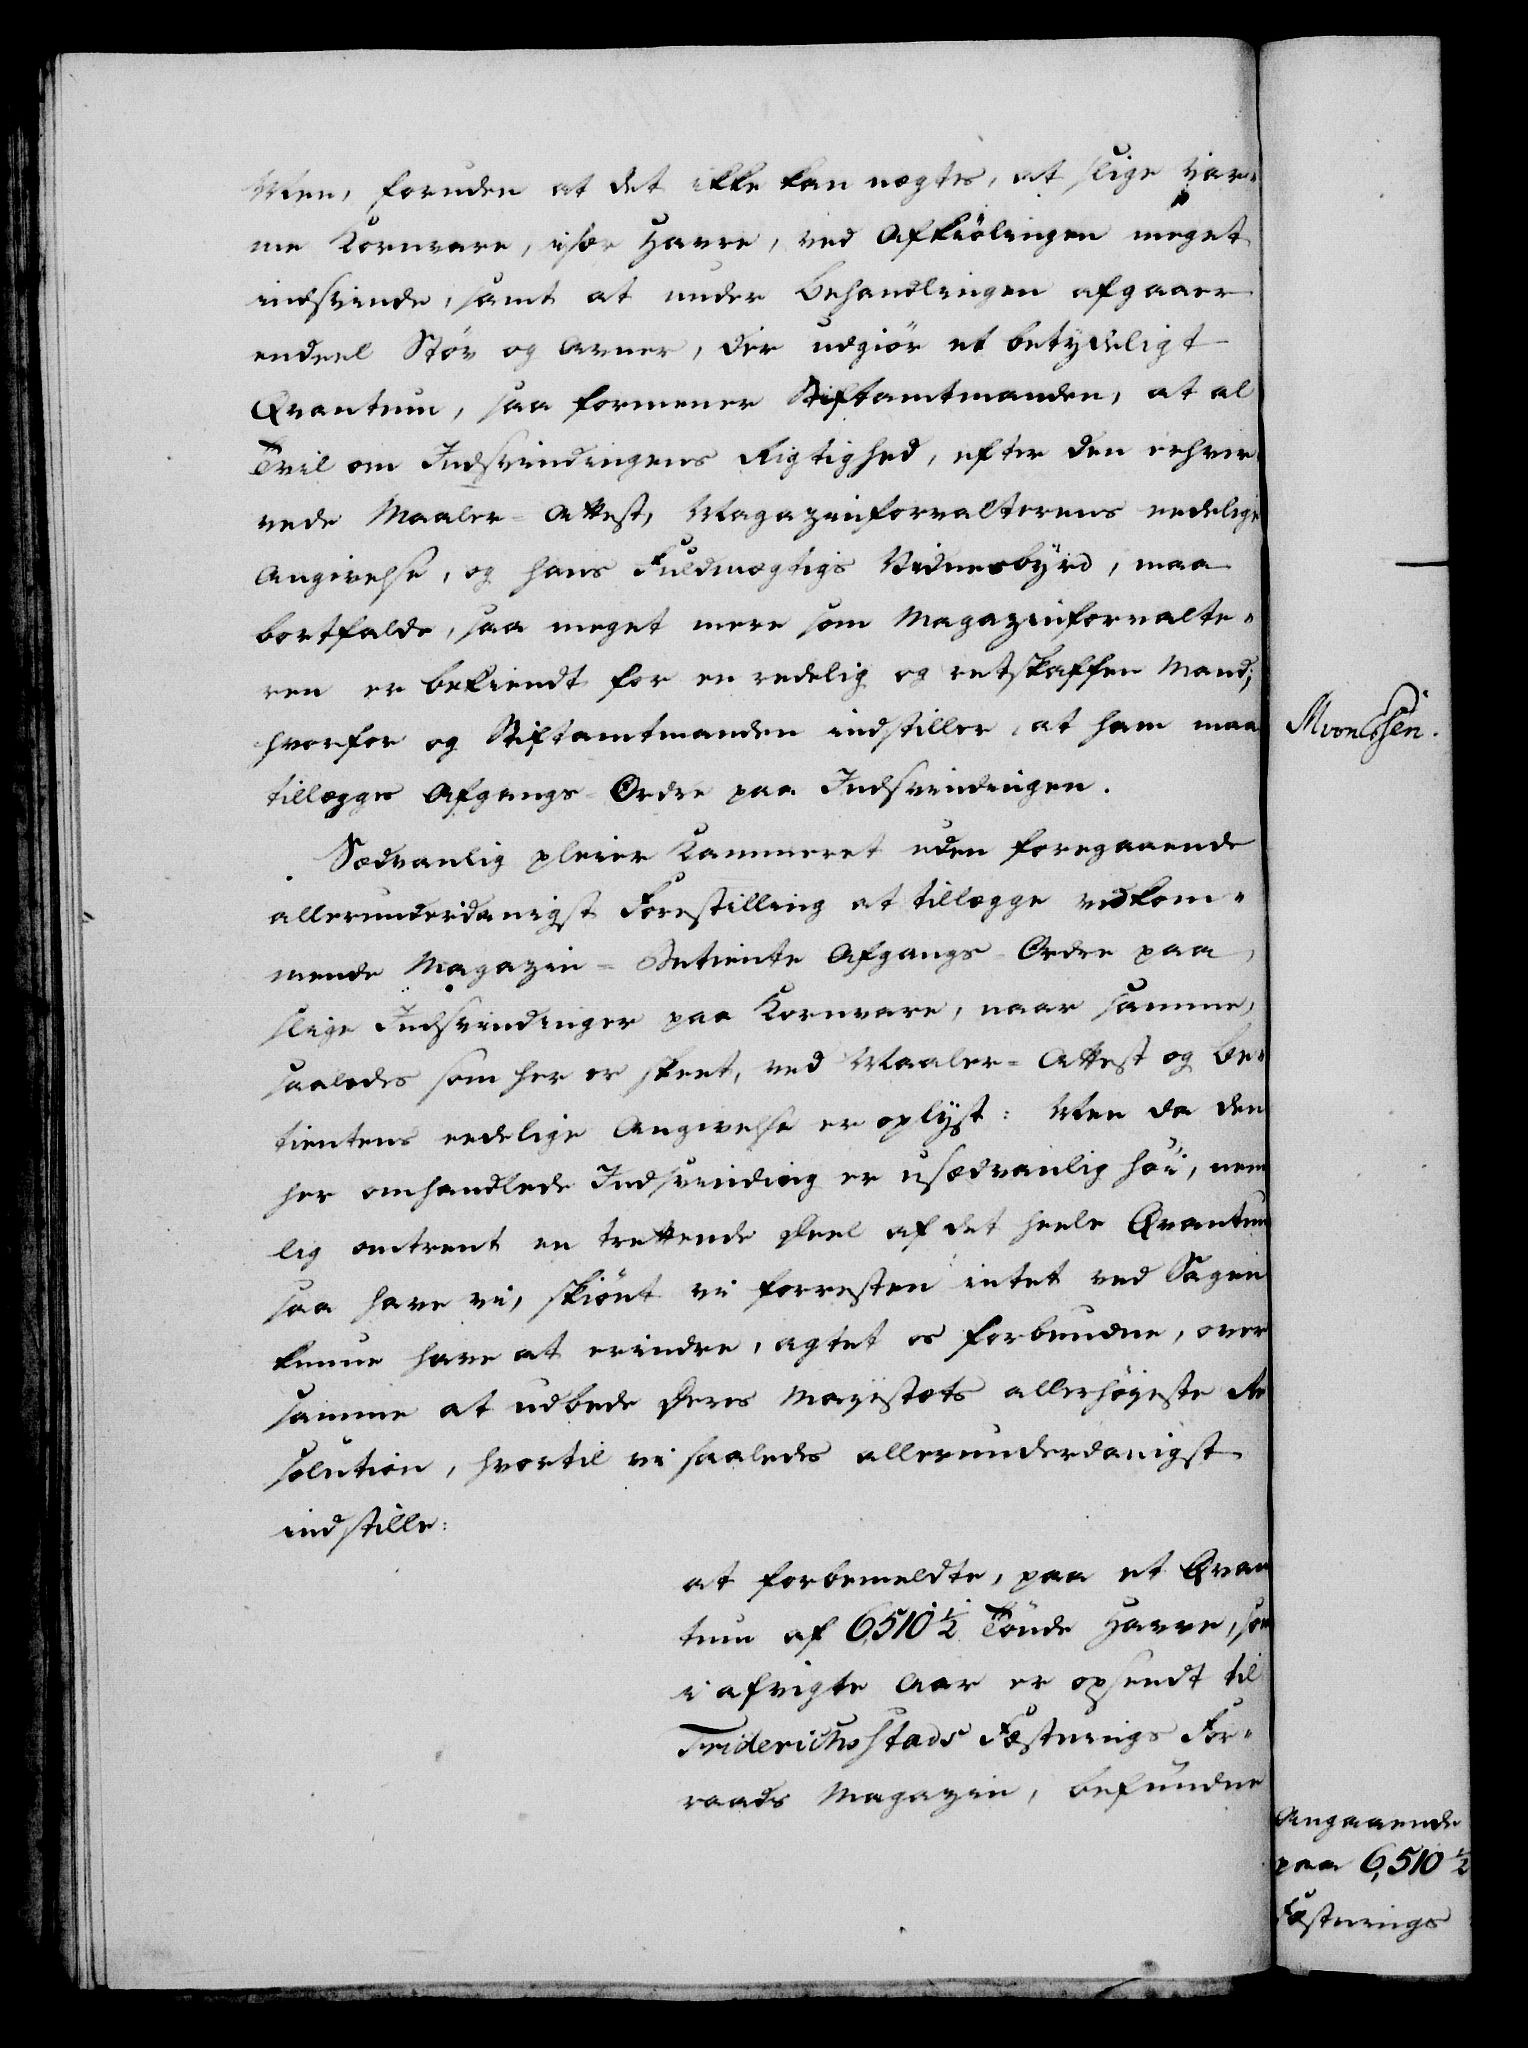 Men, foruden at det ikke kan nægtes, at slige var-
me Kornvare, især Havre, ved Afkiölingen meget
indsvinde, samt at under Behandlingen afgaaer
endeel Stöv og Avner, der udgiör et betydeligt
Qvantum, saa formener Stiftamtmanden, at al
Tvil om Indsvindingens Rigtighed, efter den erhver-
vede Maaler-Attest, Magazinforvalterens eedelige
Angivelse, og hans Fuldmægtigs Vidnesbyrd, maa
bortfalde, saa meget mere som Magazinforvalte-
ren er bekiendt for en redelig og retskaffen Mand;
hvorfor og Stiftamtmanden indstiller, at ham maa
tillægges Afgangs-Ordre paa Indsvindingen.
Sædvanlig pleier Kammeret uden foregaaende
allerunderdanigst Forestilling at tillægge vedkom-
mende Magazin-Betiente Afgangs-Ordre paa
slige Indsvindinger paa Kornvare, naar samme,
saaledes som her er skeet, ved Maaler-Attest og Be-
tientens eedelige Angivelse er oplyst: Men da den
her omhandlede Indsvinding er usædvanlig höi, nem
lig omtrent en trettende Deel af det heele Qvantum
saa have vi, skiönt vi forresten intet ved Sagen
kunne have at erindre, agtet os forbundne, over
samme at udbede Deres Majestæts allerhöyeste Re
solution, hvortil vi saaledes allerunderdanigst
indstille:
at forbemeldte, paa et Qvan
tum af 6,510 1/2 Tönde Havre, som
i afvigte Aar er opsendt til
Friderichsstads Fæstnings For-
raads Magazin, befundne
Angaaende
paa 6,510 1/2
Fæstnings